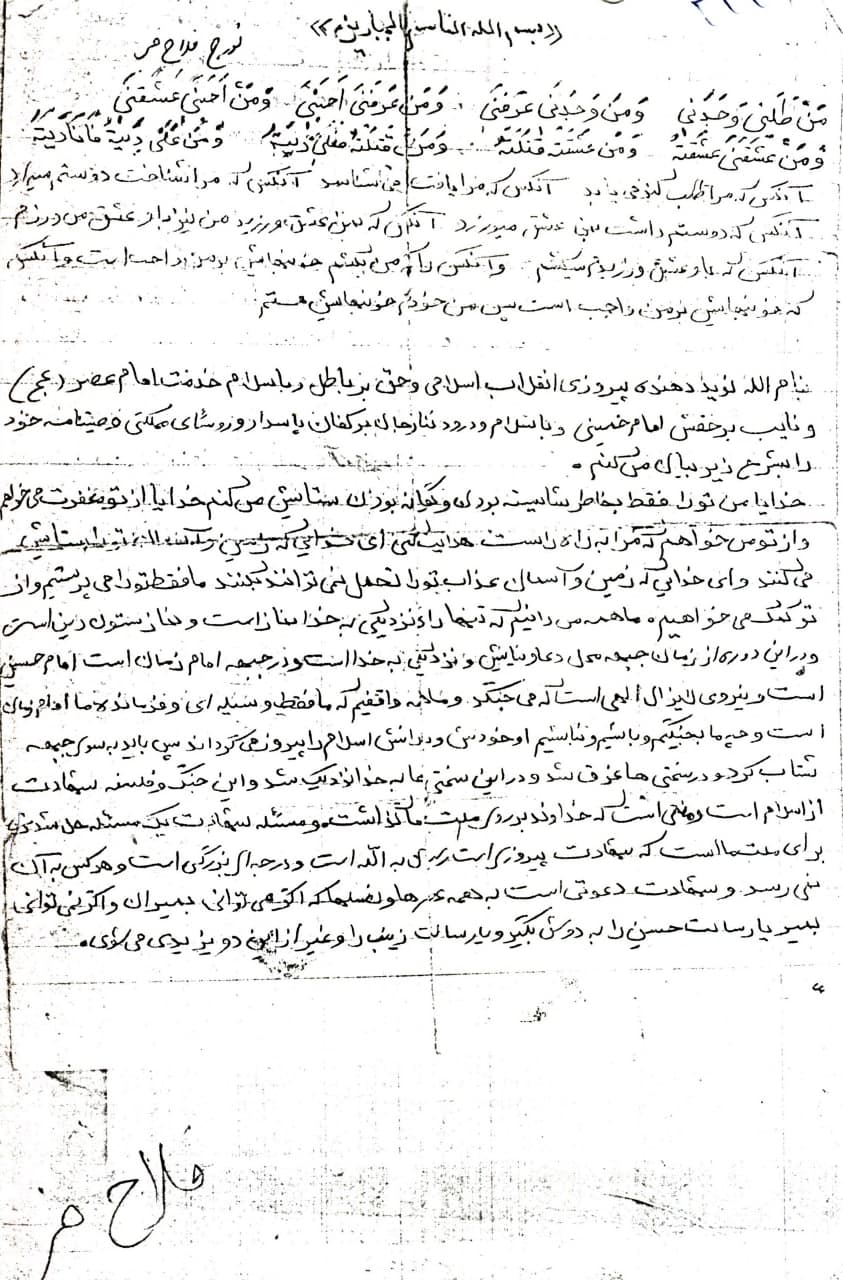 «بسم الله القاسم الجبارین»
تورج فلاح فر
مَنْ طَلَبَنی وَجَدَنی وَمَن وَجَدَنی عَرَفَنی وَمَن عَرَفَنی اَحَبَّنی وَمَنْ اَحَبَّنی عَشَقَنی
وَمَنْ عَشَقَنی عَشَقتُهُ وَمَن عَشَقتَهُ قَتَلتَهُ وَمَن قَتَلتَهُ فَعَلَیَّ دِیَتُهُ وَمَن عَلَیَّ دِیَتُهُ فَاَنَا دِیَتُهُ
آنکس که مرا طلب کند می یابد آنکس که مرا یافت می شناسد آنکس که مرا شناخت دوستم میدارد
آنکس که دوستم داشت بمن عشق میورزد آنکس که بمن عشق ورزید من نیز به او عشق می ورزم
آنکس که به او عشق ورزیدم میکشم و آنکس را که من بکشم خونبهایش بر من واجب است و آنکس
که خونبهایش بر من واجب است پس من خودم خونبهایش هستم
بنام الله نوید دهنده پیروزی انقلاب اسلامی و حق بر باطل و با سلام خدمت امام عصر (عج)
و نایب برحقش امام خمینی و با سلام و درود نثار جان بر کفان پاسدار و روستای مملکتی وصیتنامه خود
را بشرح زیر بیان می کنم .
خدایا من تو را فقط بخاطر شایسته بودن و یگانه بودن ستایش می کنم خدایا از تو مغفرت می خواهم
و از تو می خواهم که مرا به راه راست هدایت کنی ای خدایی که زمین و ملائک تو را ستایش
می کنند و ای خدایی که زمین و آسمان عذاب تو را تحمل نمی توانند بکنند ما فقط تو را می پرستیم و از
تو کمک می خواهیم . ما همه می دانیم که تنها راه نزدیکی به خدا نماز است و نماز ستون دین است
و در این دوره از زمان جبهه محل دعا و نیایش و نزدیکی به خدا است و در جبهه امام زمان است امام حسین
است و نیروی لایزال الهی است که می جنگد و ما همه واقفیم که ما فقط وسیله ای و فرمانده ما امام زمان
است و چه ما بجنگیم و باشیم و نباشیم او خودش و یارانش اسلام را پیروز می گرداند پس باید به سوی جبهه
شتاب کرد و در سختی ها غرق شد و در این سختی ها به خدا نزدیک شد و این جنگ و فلسفه شهادت
از اسلام است نعمتی است که خداوند بر روی ملت ما گذاشت . و مسئله شهادت یک مسئله حل شده
برای ملت ما است که شهادت پیروزی است رسیدن به الله است و درجه ای بزرگی است و هر کس به آن
نمی رسد . و شهادت دعوتی است به همه عصرها و نسلها که اگر می توانی بمیران و اگر نمی توانی
بمیر یا رسالت حسین را به دوش بگیر و یا رسالت زینب را و غیر از این دو یزیدی می شوی .
فلاح فر